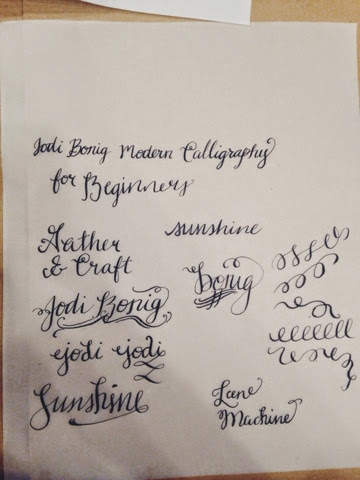 Jodi Bonig Modern Calligraphy
for Beginners
sunshine
Gather
& Craft
Bonig
Jodi Bonig
jodi jodi
Sunshine
Lane
Machine